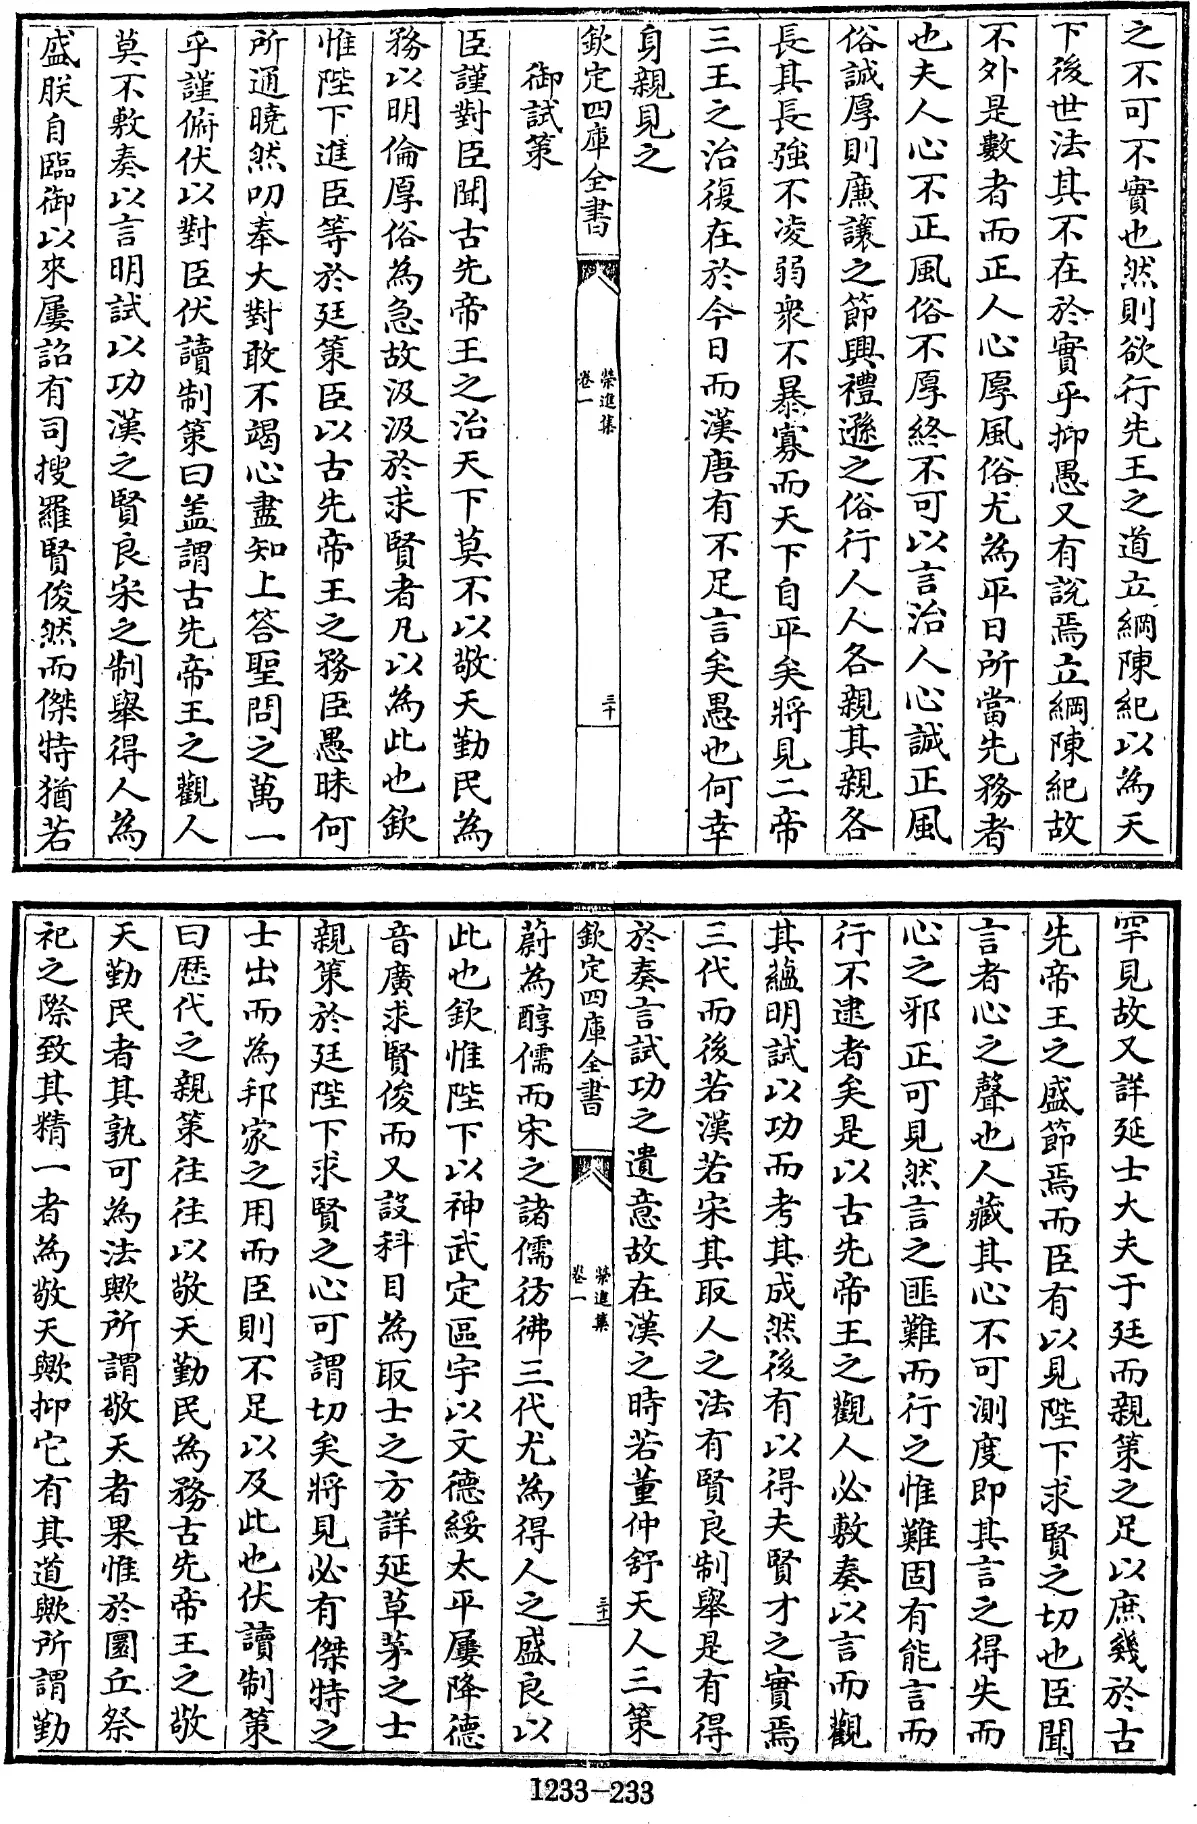 之不可不實也然則欲行先王之道立綱陳紀以為天
下後世法其不在於實乎抑愚又有說焉立綱陳紀故
不外是數者而正人心厚風俗尤為平日所當先務者
也夫人心不正風俗不厚終不可以言治人心誠正風
俗誠厚則廉讓之節興禮遜之俗行人人各親其親各
長其長強不凌弱衆不暴寡而天下自平矣將見二帝
三王之治復在於今日而漢唐有不足言矣愚也何幸
身親見之
欽定四庫全書
榮進集
卷一
三十
御試策
臣謹對臣聞古先帝王之治天下莫不以敬天勤民為
務以明倫厚俗為急故汲汲於求賢者凡以為此也欽
惟陛下進臣等於廷策臣以古先帝王之務臣愚昧何
所通曉然叨奉大對敢不竭心盡知上答聖問之萬一
乎謹俯伏以對臣伏讀制策曰盖謂古先帝王之觀人
莫不敷奏以言明試以功漢之賢良宋之制舉得人為
盛朕自臨御以來屢詔有司搜羅賢俊然而傑特猶若
罕見故又詳延士大夫于廷而親策之足以庶幾於古
先帝王之盛節焉而臣有以見陛下求賢之切也臣聞
言者心之聲也人藏其心不可測度即其言之得失而
心之邪正可見然言之匪難而行之惟難固有能言而
行不逮者矣是以古先帝王之觀人必敷奏以言而觀
其蘊明試以功而考其成然後有以得夫賢才之實焉
三代而後若漢若宋其取人之法有賢良制舉是有得
於奏言試功之遺意故在漢之時若董仲舒天人三策
欽定四庫全書
榮進集
卷一
三十一
蔚為醇儒而宋之諸儒彷彿三代尤為得人之盛良以
此也欽惟陛下以神武定區宇以文德綏太平屢降德
音廣求賢俊而又設科目為取士之方詳延草茅之士
親策於廷陛下求賢之心可謂切矣將見必有傑特之
士出而為邦家之用而臣則不足以及此也伏讀制策
曰歷代之親策往往以敬天勤民為務古先帝王之敬
天勤民者其孰可為法歟所謂敬天者果惟於圜丘祭
祀之際致其精一者為敬天歟抑它有其道歟所謂勤
1233-233